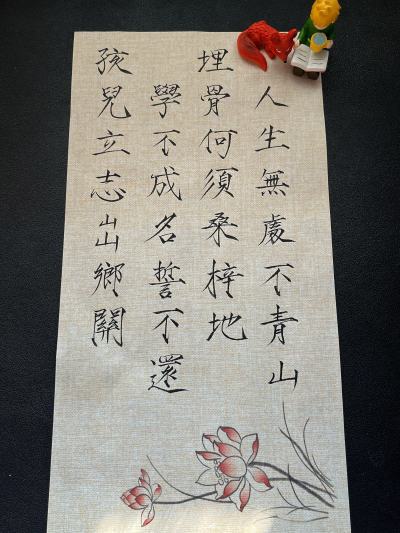 孩兒立志出鄉關
學不成名誓不還
埋骨何須桑梓地
人生無處不青山